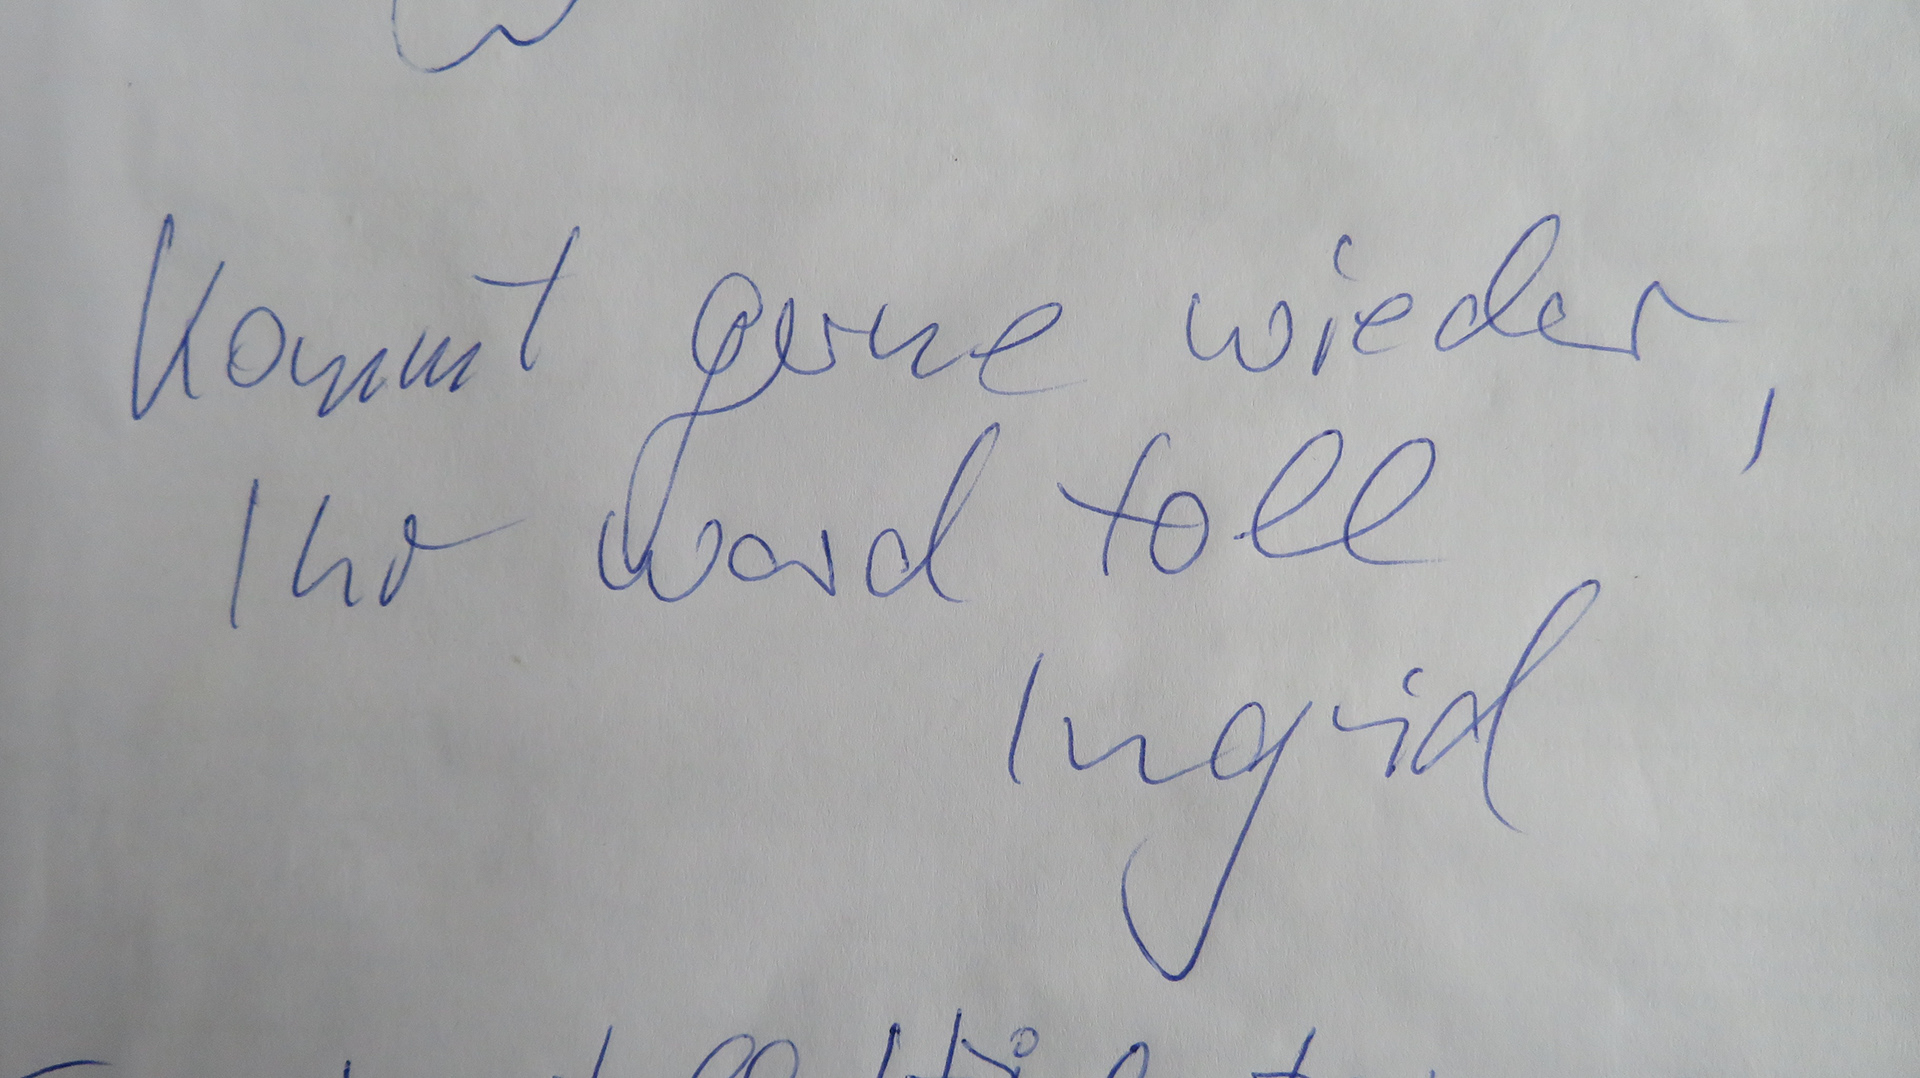 Kommt gerne wieder,
Ihr ward toll
Ingrid